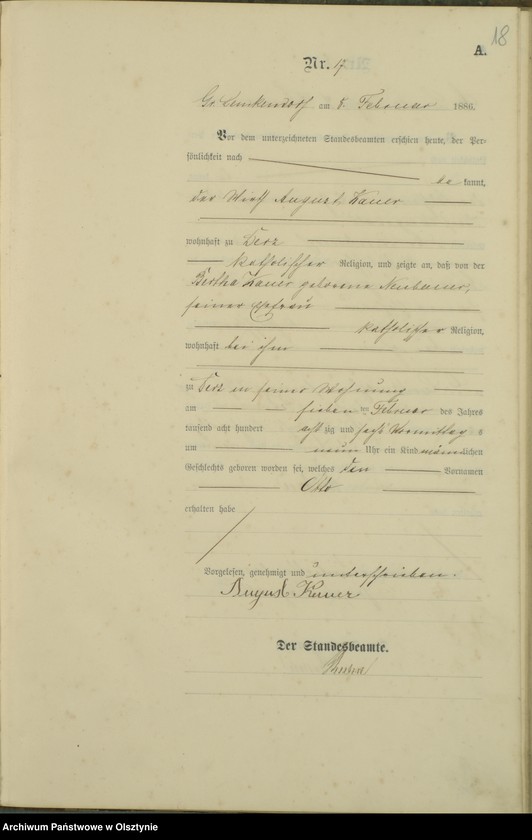 18
A.
Nr. 17
am 8 Februar 1886.
Vor dem unterzeichneten Standesbeamten erschien heute, der Per-
sönlichkeit nach
be kannt,
der Wirth August Kauer
wohnhaft zu Derz
katholischer Religion, und zeigte an, daß von der
Bertha Kauer geborene Neubauer,
seiner Ehefrau
katholischer Religion,
wohnhaft bei ihm
zu Derz in seiner Wohnung
am sieben ten Februar des Jahres
tausend acht hundert acht zig und sechs Vormittags
um neun Uhr ein Kind männlichen
Geschlechts geboren worden sei, welches den Vornamen
Otto
erhalten habe
Vorgelesen, genehmigt und unterschrieben.
August Kauer
Der Standesbeamte.
Archiwum Państwowe w Olsztynie